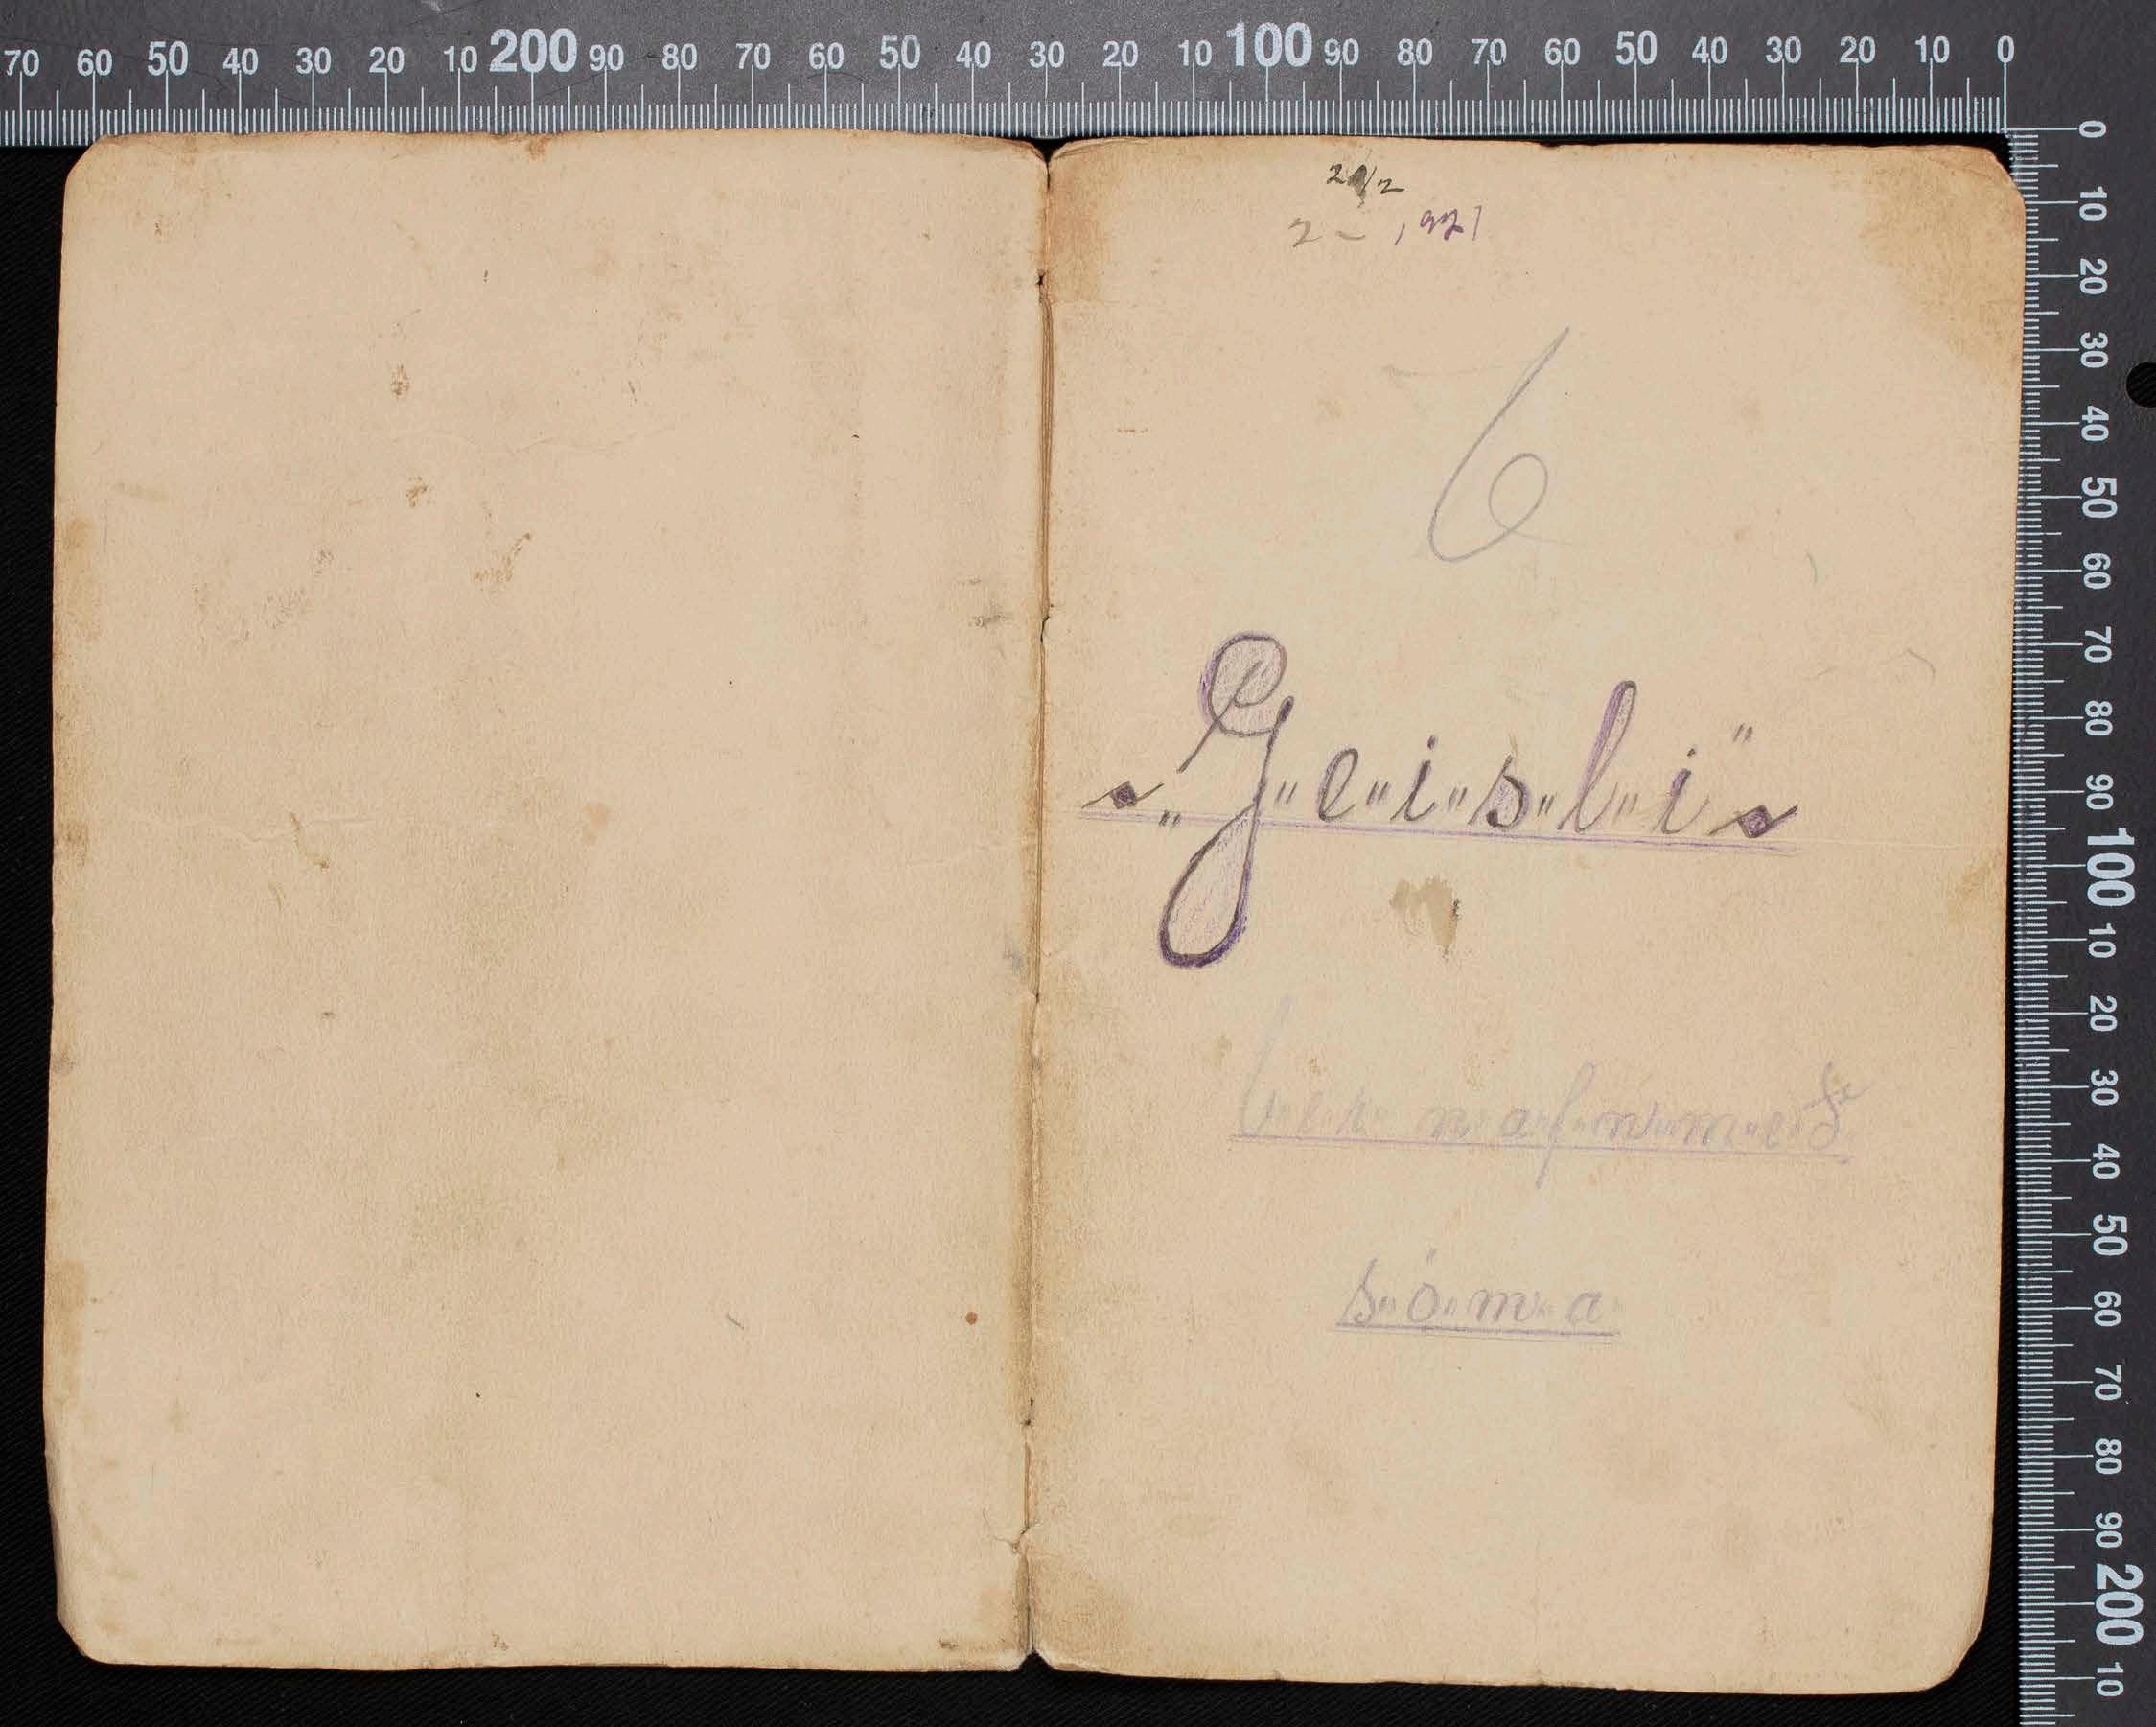 70 60 50 40 30 20 10 200 90 80 70 60 50 40 30 20 10 100 90 80 70 60 50 40 30 20 10 0
2 - 1921
6
„G"e"i"s"l"i"
Ber nafn með
sóma
0 10 20 30 40 50 60 70 80 90 100 10 20 30 40 50 60 70 80 90 200 10